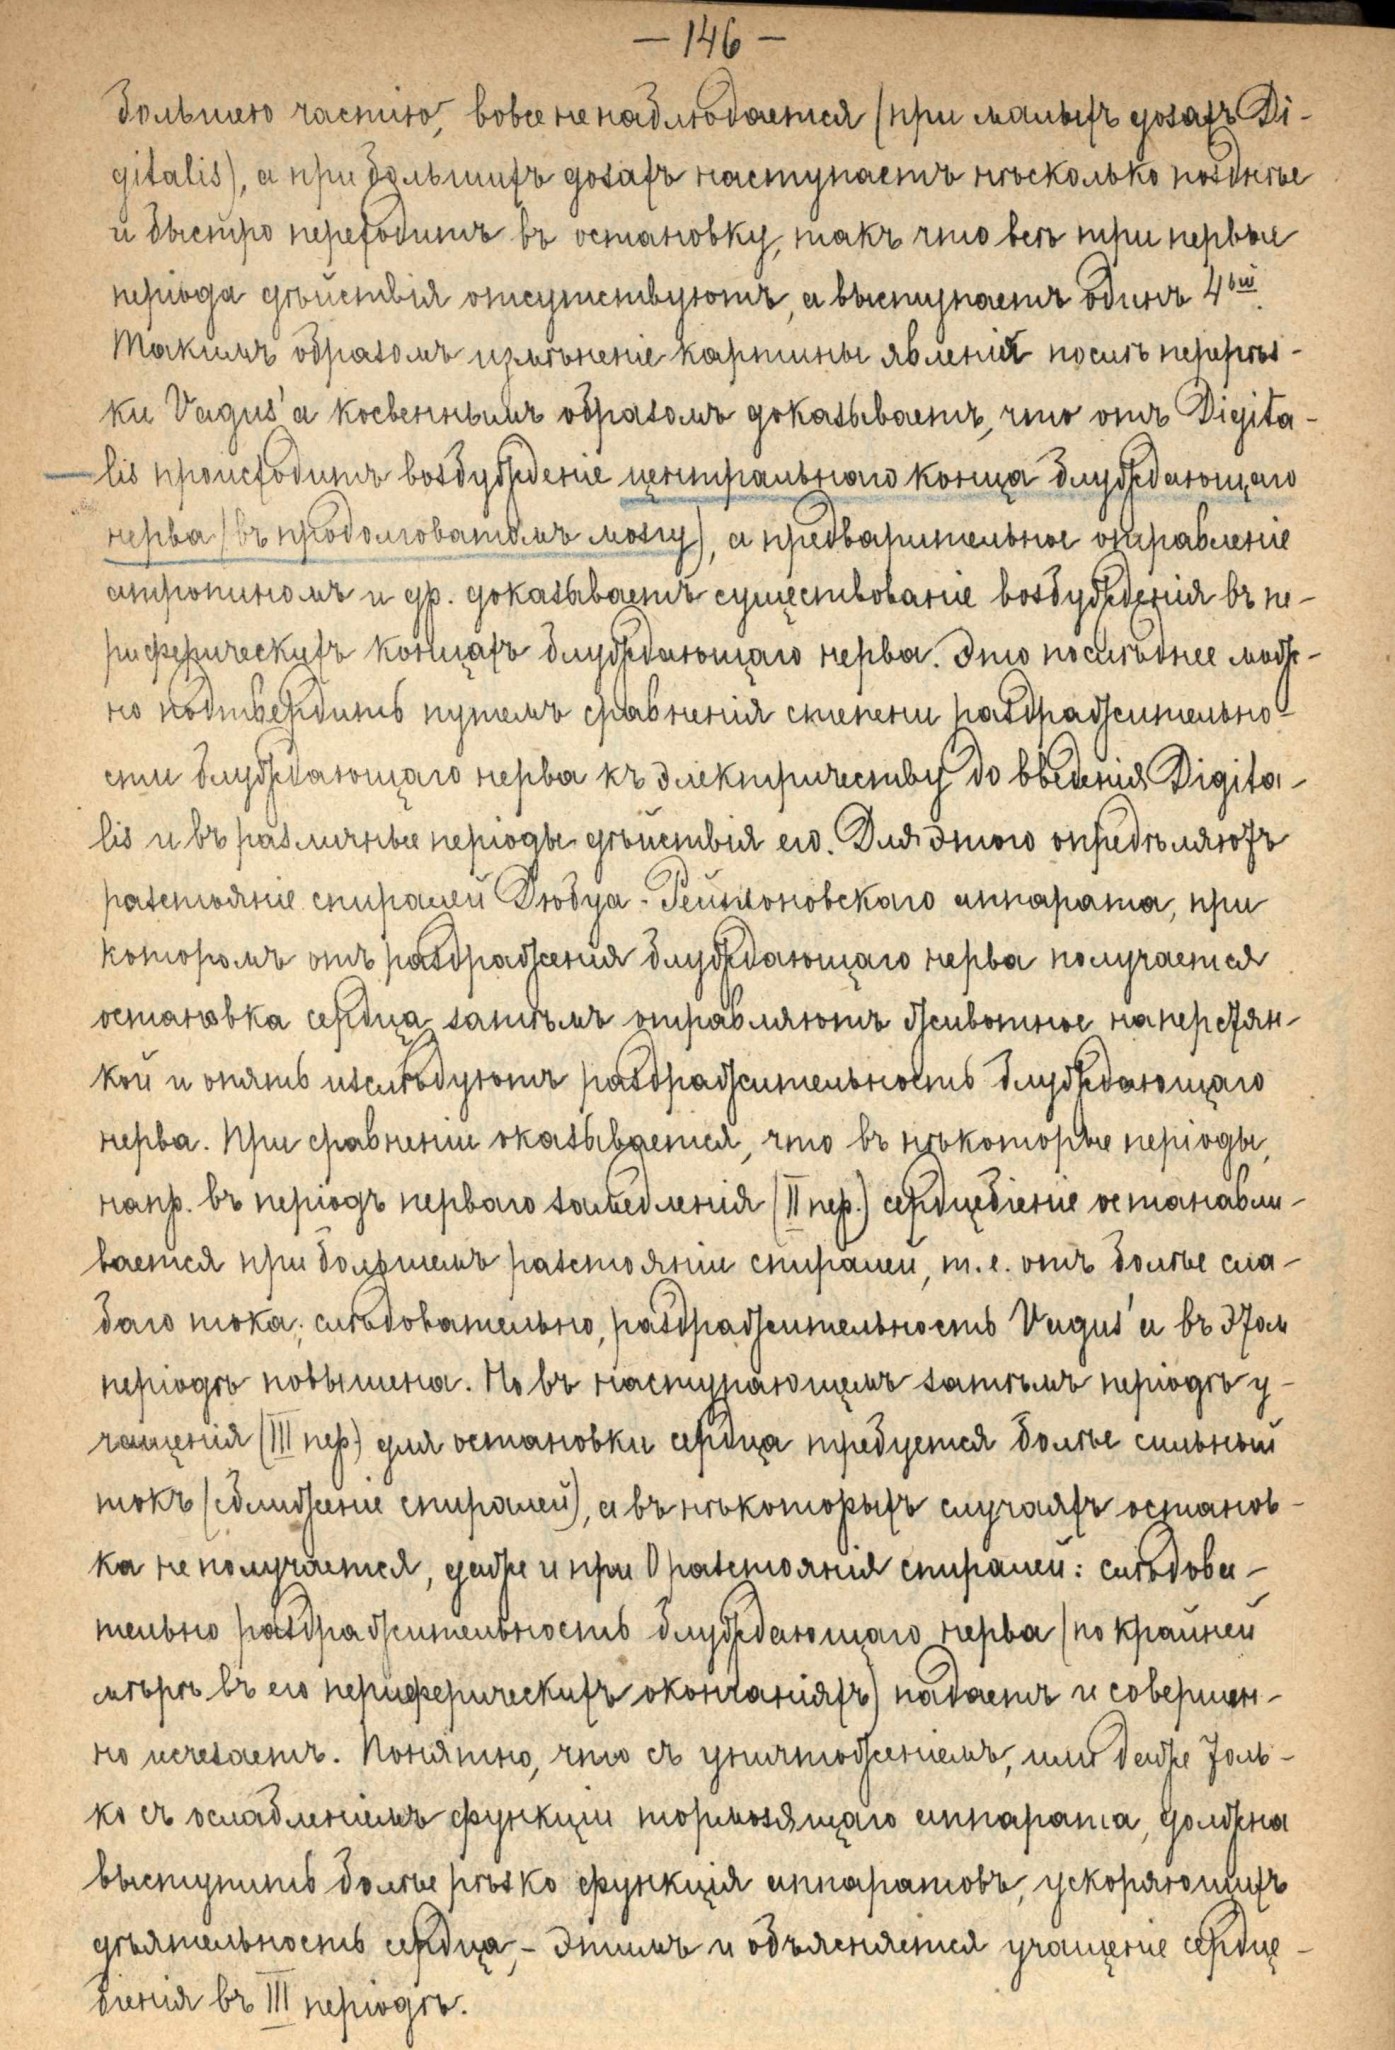 — 146 —
большею частію, вовсе не наблюдается (при малыхъ дозахъ Di-
gitalis), а при большихъ дозахъ наступаетъ нѣсколько позднѣе
и быстро переходитъ въ остановку, такъ что всѣ три первые
періода дѣйствія отсутствуютъ, а выступаетъ одинъ 4ый.
Такимъ образомъ измѣненіе картины явленій послѣ перерѣз-
ки Vagus'а косвеннымъ образомъ доказываетъ, что отъ Digita-
lis происходитъ возбужденіе центральнаго конца блуждающаго
нерва (въ продолговатомъ мозгу), а предварительное отравленіе
атропиномъ и др. доказываетъ существованіе возбужденія въ пе-
риферическихъ концахъ блуждающаго нерва. Это послѣднее мож-
но подтвердить путемъ сравненія степени раздражительно-
сти блуждающаго нерва къ электричеству до введенія Digita-
lis и въ различные періоды дѣйствія его. Для этого опредѣляютъ
разстояніе спиралей Дюбуа-Реймоновскаго аппарата, при
которомъ отъ раздраженія блуждающаго нерва получается
остановка сердца, затѣмъ отравляютъ животное наперстян-
кой и опять изслѣдуютъ раздражительность блуждающаго
нерва. При сравненіи оказывается, что въ нѣкоторые періоды,
напр. въ періодъ перваго замедленія (II пер.) сердцебіеніе останавли-
вается при большемъ разстояніи спиралей, т. е. отъ болѣе сла-
баго тока; слѣдовательно, раздражительность Vagus'а въ этом
періодѣ повышена. Но въ наступающемъ затѣмъ періодѣ у-
чащенія (III пер.) для остановки сердца требуется болѣе сильный
токъ (сближеніе спиралей), а въ нѣкоторыхъ случаяхъ останов-
ка не получается, даже и при 0 разстоянія спиралей: слѣдова-
тельно раздражительность блуждающаго нерва (по крайней
мѣрѣ въ его периферическихъ окончаніяхъ) падаетъ и совершен-
но исчезаетъ. Понятно, что съ уничтоженіемъ, или даже толь-
ко съ ослабленіемъ функціи тормозящаго аппарата, должна
выступить болѣе рѣзко функція аппаратовъ, ускоряющихъ
дѣятельность сердца, – этимъ и объясняется учащеніе сердце-
біенія въ III періодѣ.